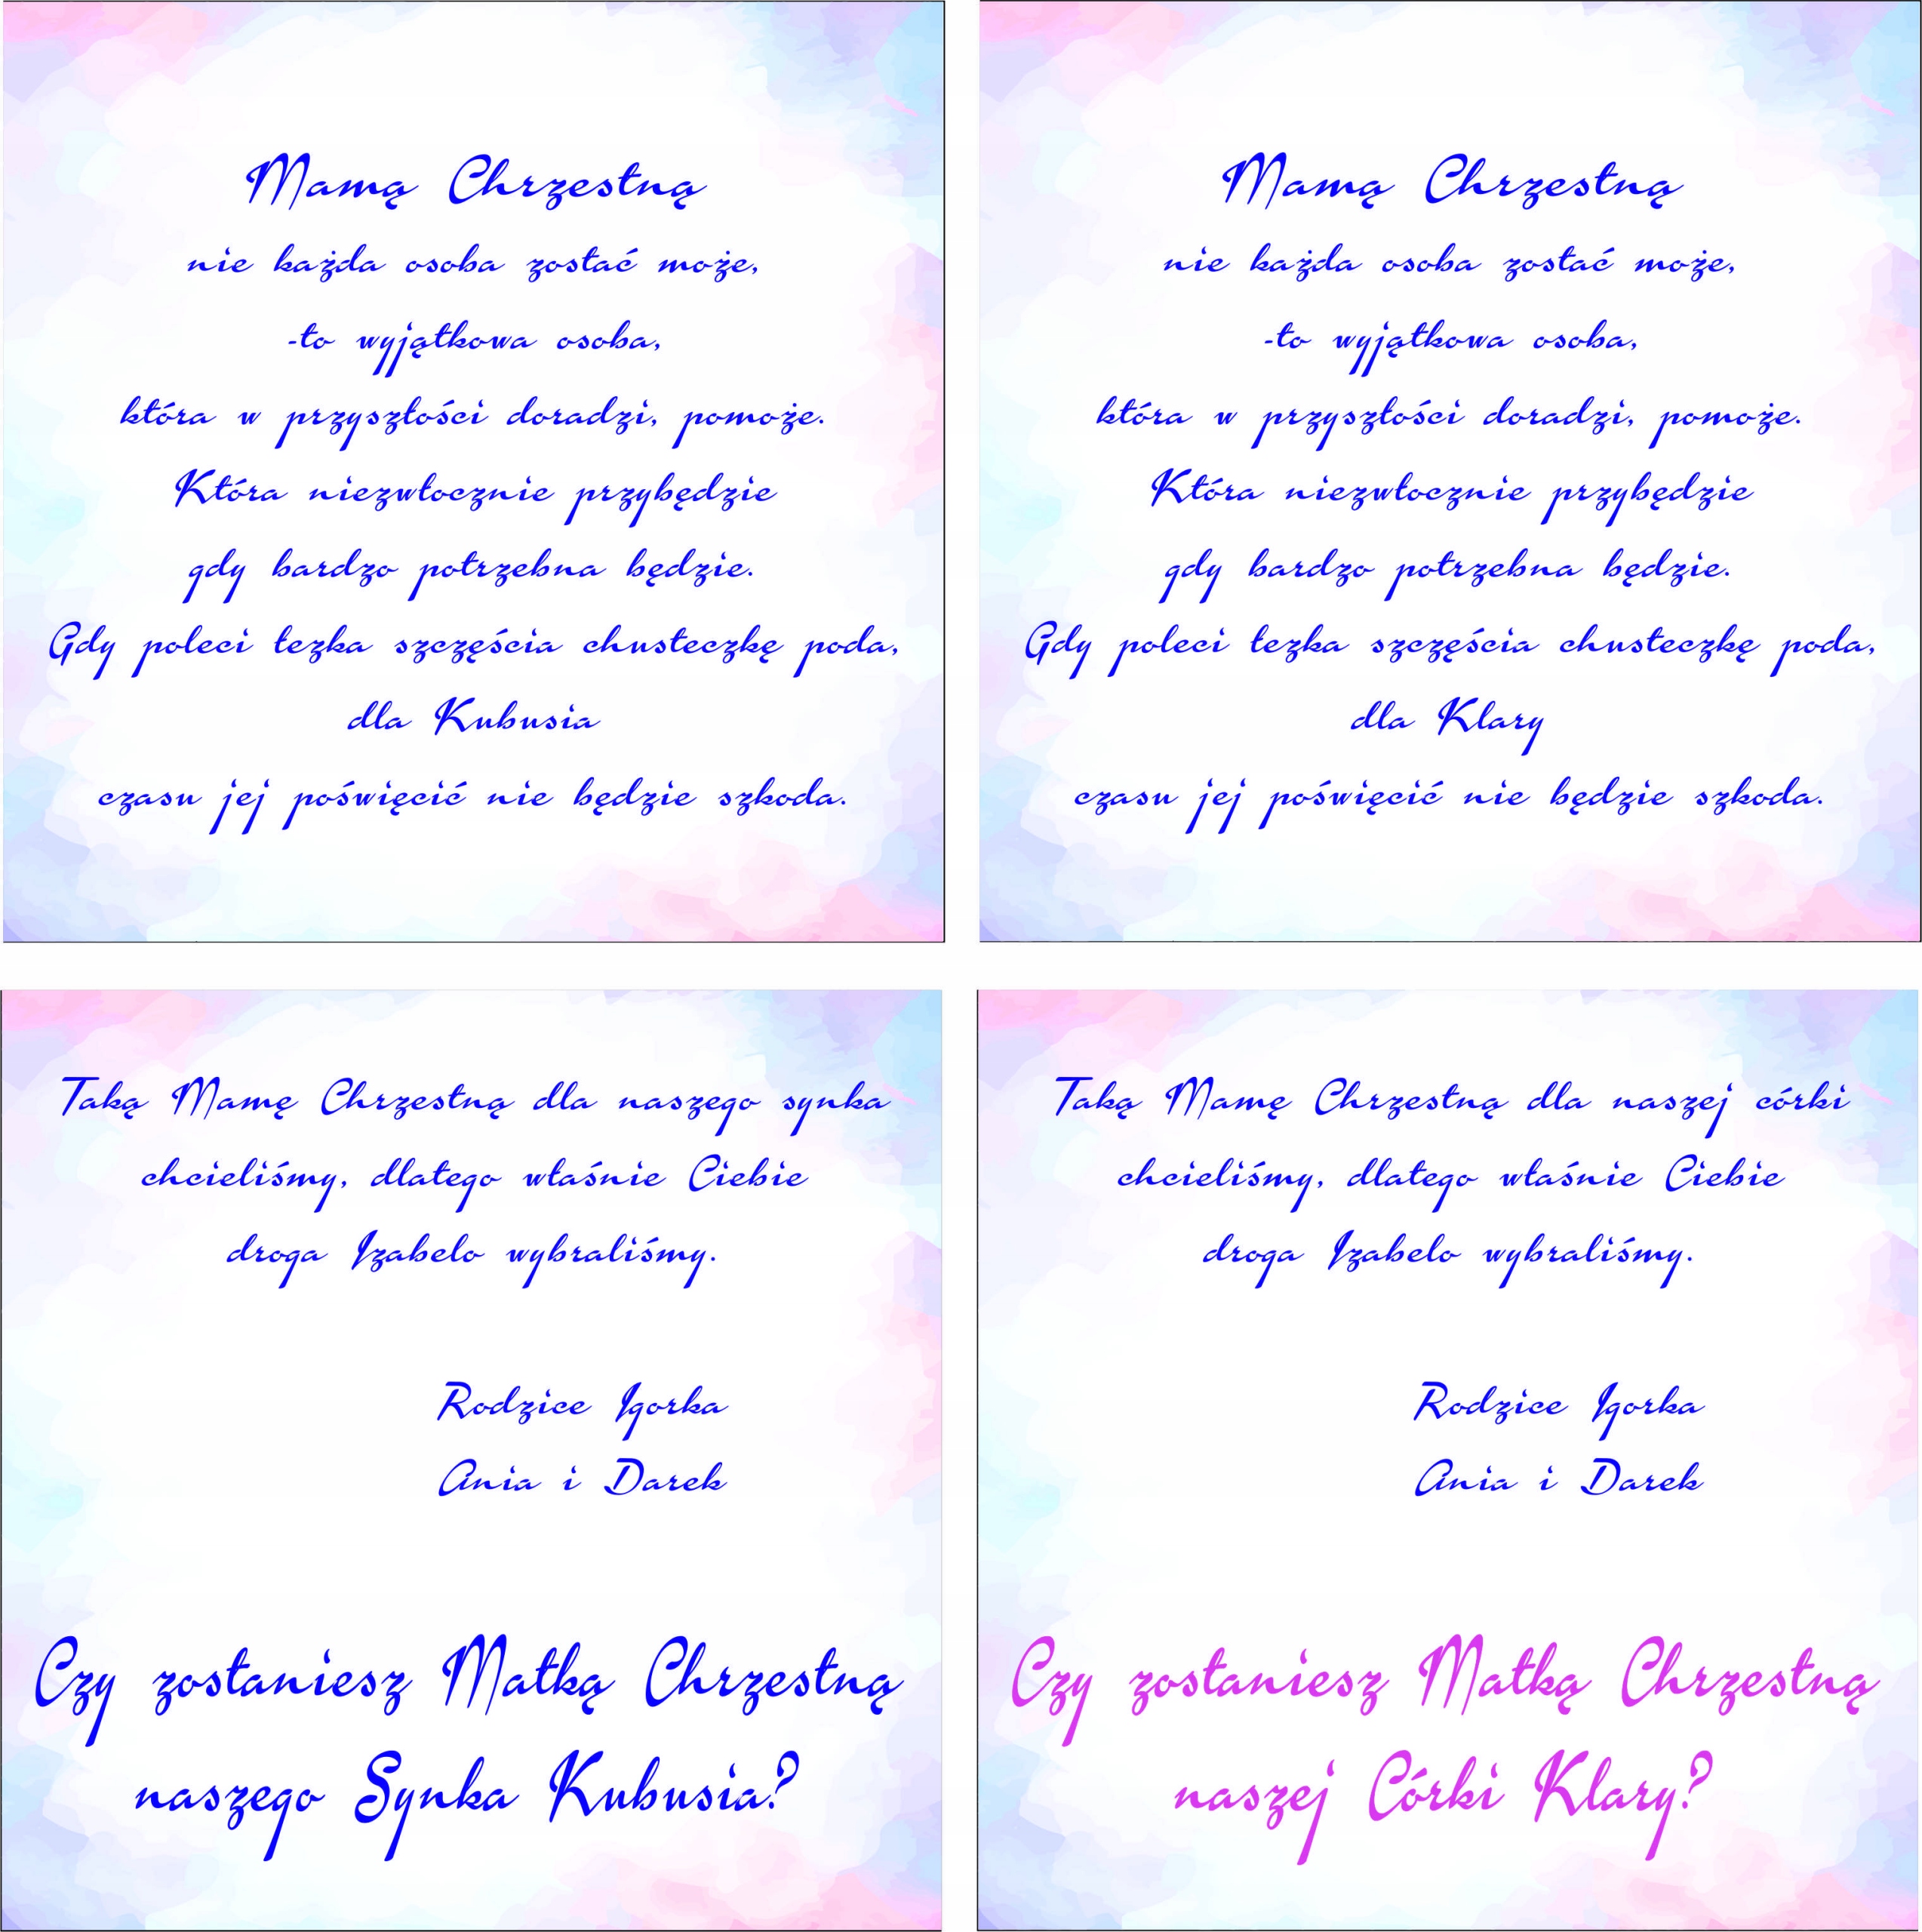 Mamą Chrzestną
nie każda osoba zostać może,
-to wyjątkowa osoba,
która w przyszłości doradzi, pomoże.
Która niezwłocznie przybędzie
gdy bardzo potrzebna będzie.
Gdy poleci łezka szczęścia chusteczkę poda,
dla Kubusia
czasu jej poświęcić nie będzie szkoda.
Mamą Chrzestną
nie każda osoba zostać może,
-to wyjątkowa osoba,
która w przyszłości doradzi, pomoże.
Która niezwłocznie przybędzie
gdy bardzo potrzebna będzie.
Gdy poleci łezka szczęścia chusteczkę poda,
dla Klary
czasu jej poświęcić nie będzie szkoda.
Taką Mamę Chrzestną dla naszego synka
chcieliśmy, dlatego właśnie Ciebie
droga Izabelo wybraliśmy.
Rodzice Igorka
Ania i Darek
Czy zostaniesz Matką Chrzestną
naszego Synka Kubusia?
Taką Mamę Chrzestną dla naszej córki
chcieliśmy, dlatego właśnie Ciebie
droga Izabelo wybraliśmy.
Rodzice Igorka
Ania i Darek
Czy zostaniesz Matką Chrzestną
naszej Córki Klary?